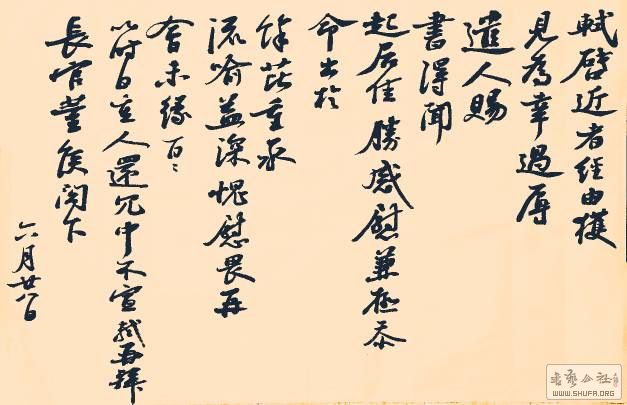 軾啓近者經由獲
見為幸過辱
遣人賜
書得聞
起居佳勝感慰兼極忝
命出於
餘芘重承
流喻益深愧慰畏再
會未緣百〻
以時自重人還冗中不宣軾再拜
長官董侯閣下
六月廿八日
書藝公社
WWW.SHUFA.ORG